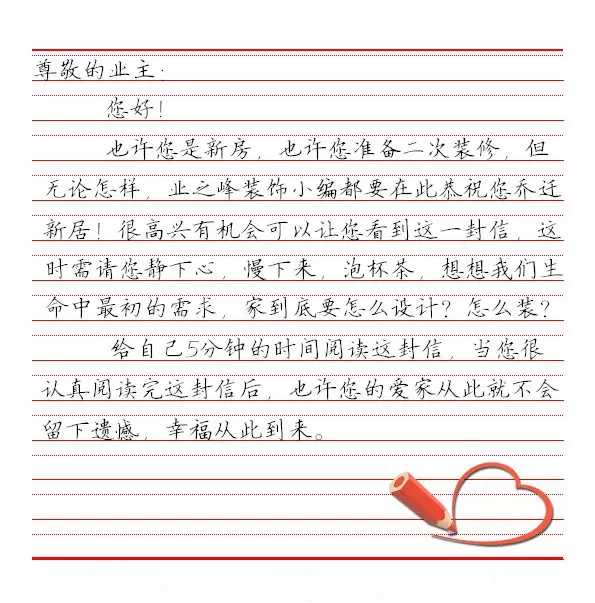 尊敬的业主：
您好！
也许您是新房，也许您准备二次装修，但
无论怎样，业之峰装饰小编都要在此恭祝您乔迁
新居！很高兴有机会可以让您看到这一封信，这
时需请您静下心，慢下来，泡杯茶，想想我们生
命中最初的需求，家到底要怎么设计？怎么装？
给自己5分钟的时间阅读这封信，当您很
认真阅读完这封信后，也许您的爱家从此就不会
留下遗憾，幸福从此到来。